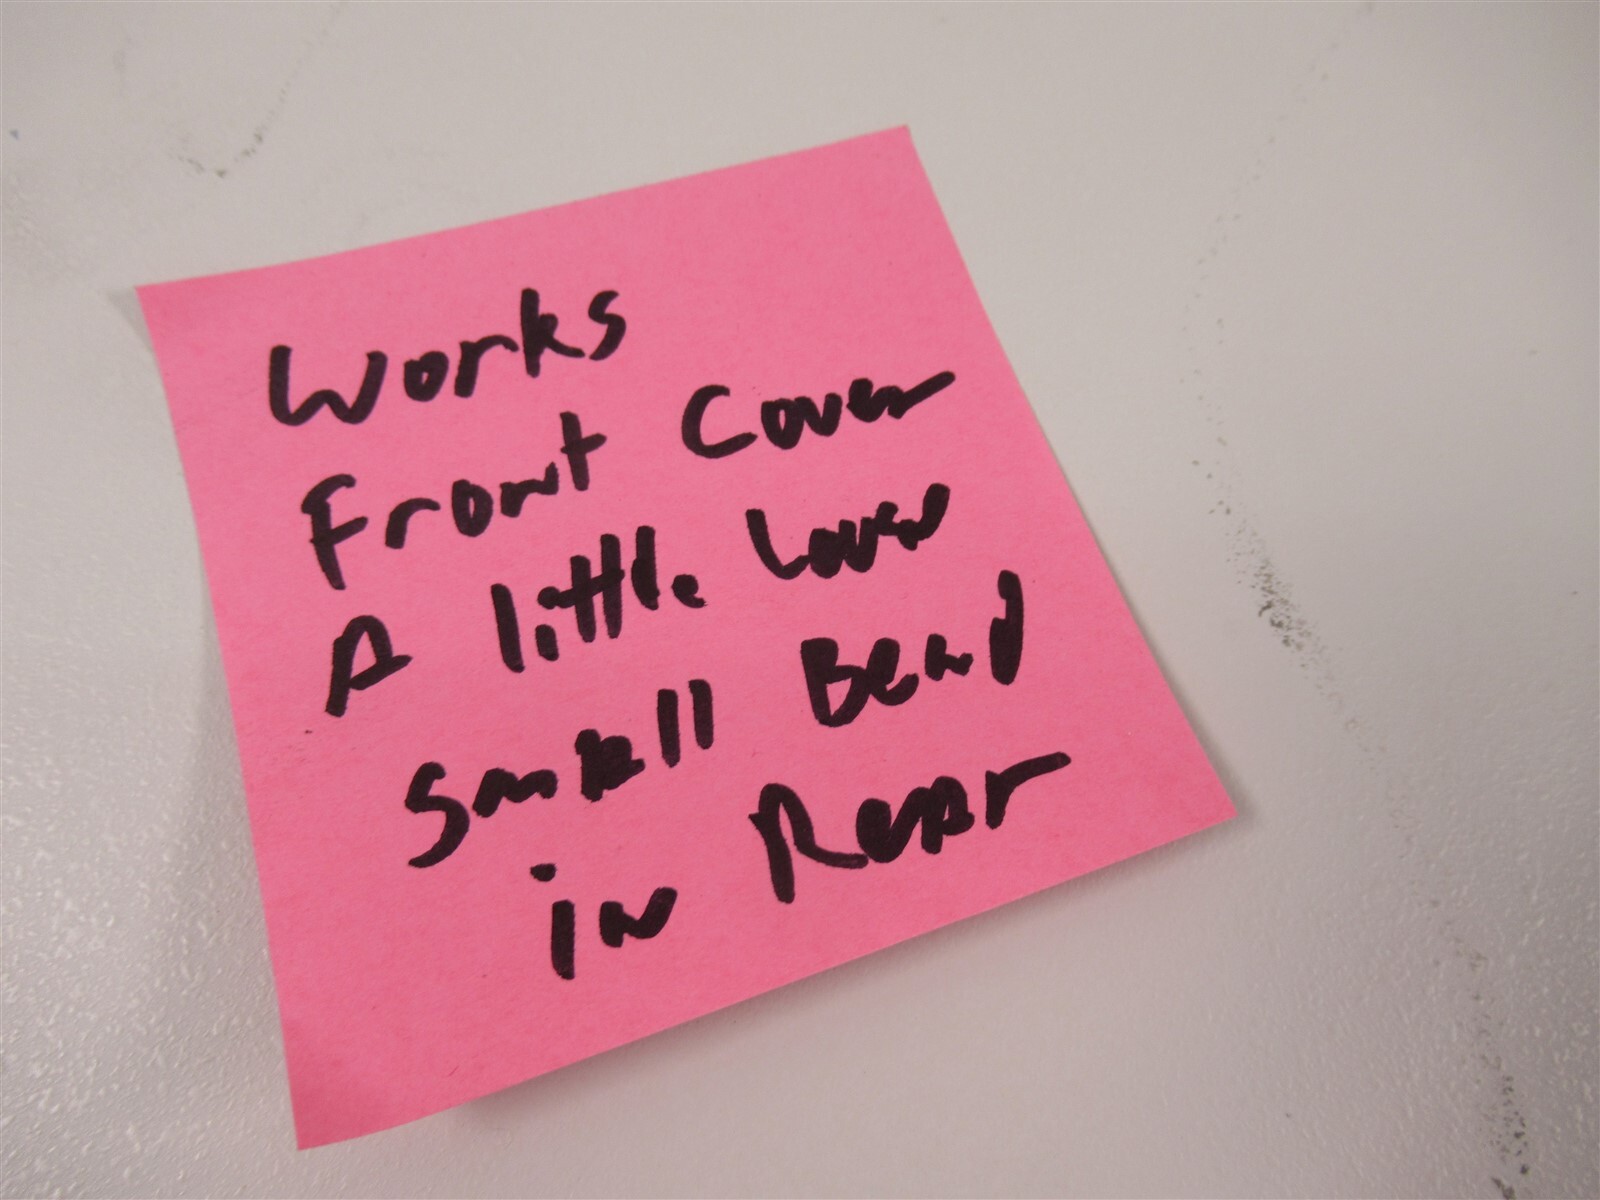 Works
Front Cover
A little Lower
Small Bend
in Rear